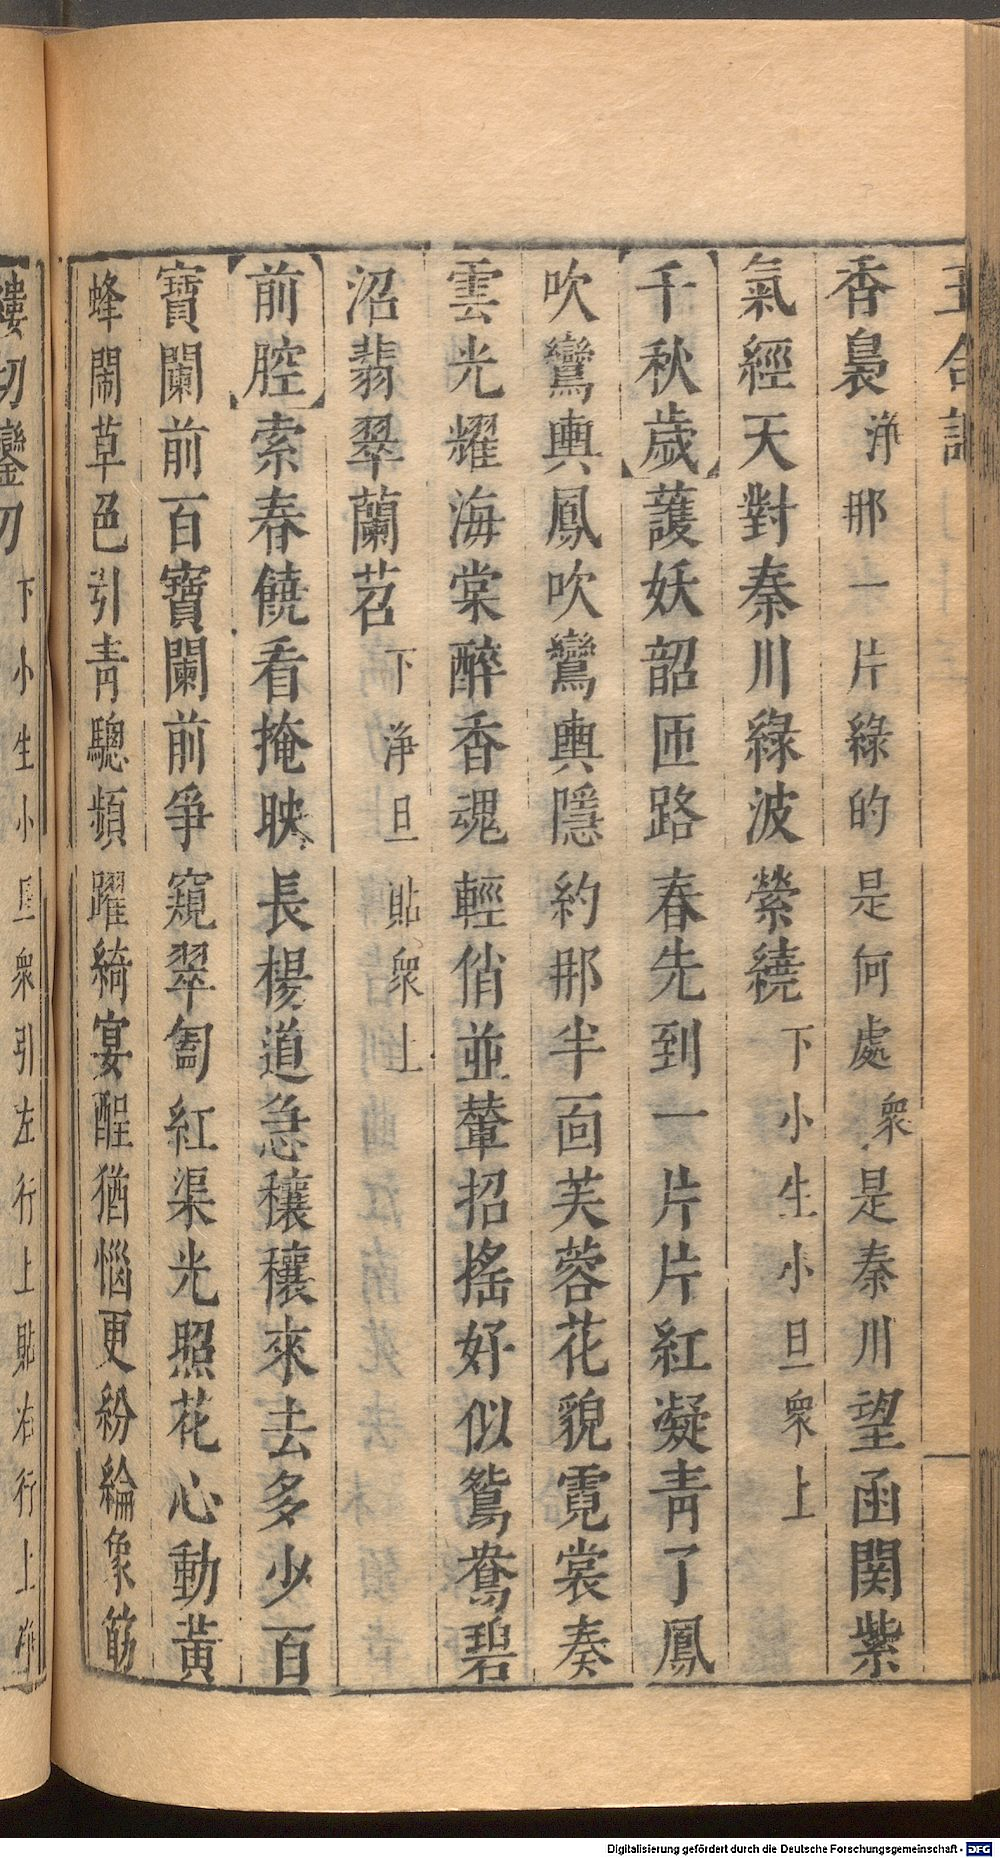 玉合記
香裊淨那一片綠的是何處衆是秦川望函関紫
氣經天對秦川綠波縈繞下小生小旦衆上
千秋歲頀妖韶匝路春先到一片片紅凝青了鳳
吹鸞輿鳳吹鸞輿隱約那半面芙蓉花貌霓裳奏
雲光耀海棠醉香魂輕俏並輦招搖好似鴛鴦碧
沼翡翠蘭苕下淨旦貼衆上
前腔索春饒看掩映長楊道急穰穰來去多少百
寶闌前百寶闌前爭窺翠匎紅渠光照花心動黃
蜂鬧草色引青驄頻躍綺宴酲猶惱更紛綸象筯
縷切鑾刀下小生小旦衆引左行上貼右行上
Digitalisierung gefördert durch die Deutsche Forschungsgemeinschaft - DFG